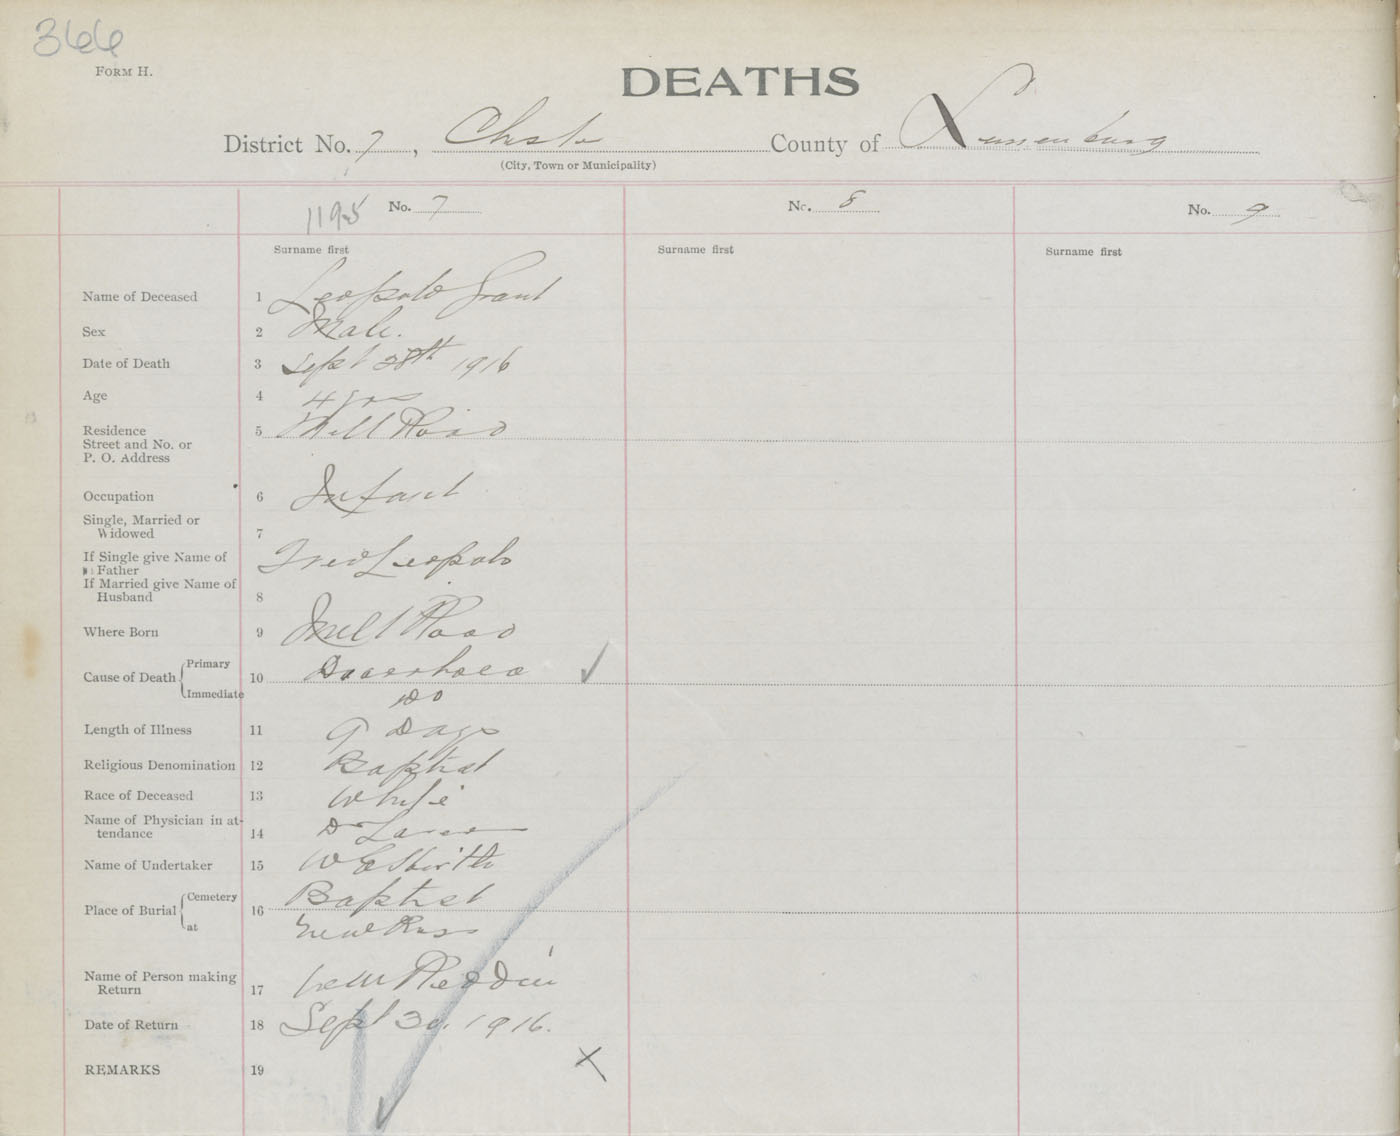 366
FORM H.
DEATHS
District No. 7, Chester County of Lunenburg
(City, Town or Municipality)
1195 No. 7 No. 8 No. 9
Surname first Surname first Surname first
Name of Deceased 1 Leopold Grant
Sex 2 Male.
Date of Death 3 Sept 28th 1916
Age 4 4 yrs
Residence 5 Mill Road
Street and No. or
P. O. Address
Occupation 6 Infant
Single, Married or
Widowed 7
If Single give Name of Fred Leopold
Father
If Married give Name of
Husband 8
Where Born 9 Mill Road
Cause of Death Primary 10 Diarrhoea
Immediate Do
Length of Illness 11 9 Days
Religious Denomination 12 Baptist
Race of Deceased 13 White
Name of Physician in at-
tendance 14 Dr
Name of Undertaker 15
Place of Burial Cemetery 16 Baptist
at New Ross
Name of Person making
Return 17 Reddin
Date of Return 18 Sept 30. 1916.
REMARKS 19 X